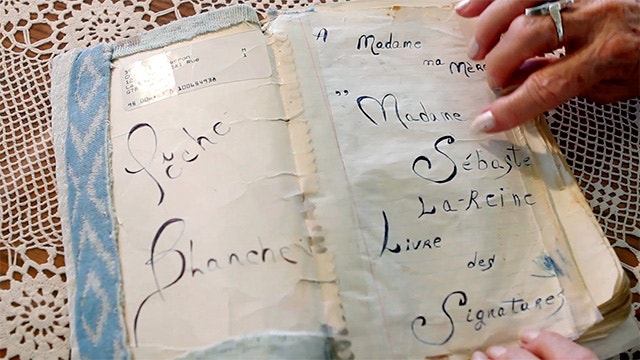 Blanche
A Madame
ma Mère
" Madame
Sébaste
La-Reine
Livre
des
Signatures